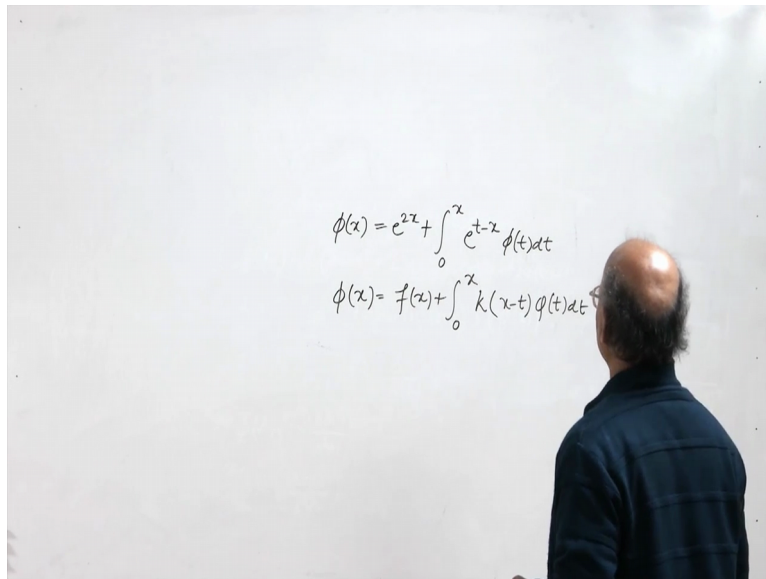 ϕ(x) = e^{2x} + ∫_0^x e^{t-x} ϕ(t)dt
ϕ(x) = f(x) + ∫_0^x k(x-t) φ(t)dt